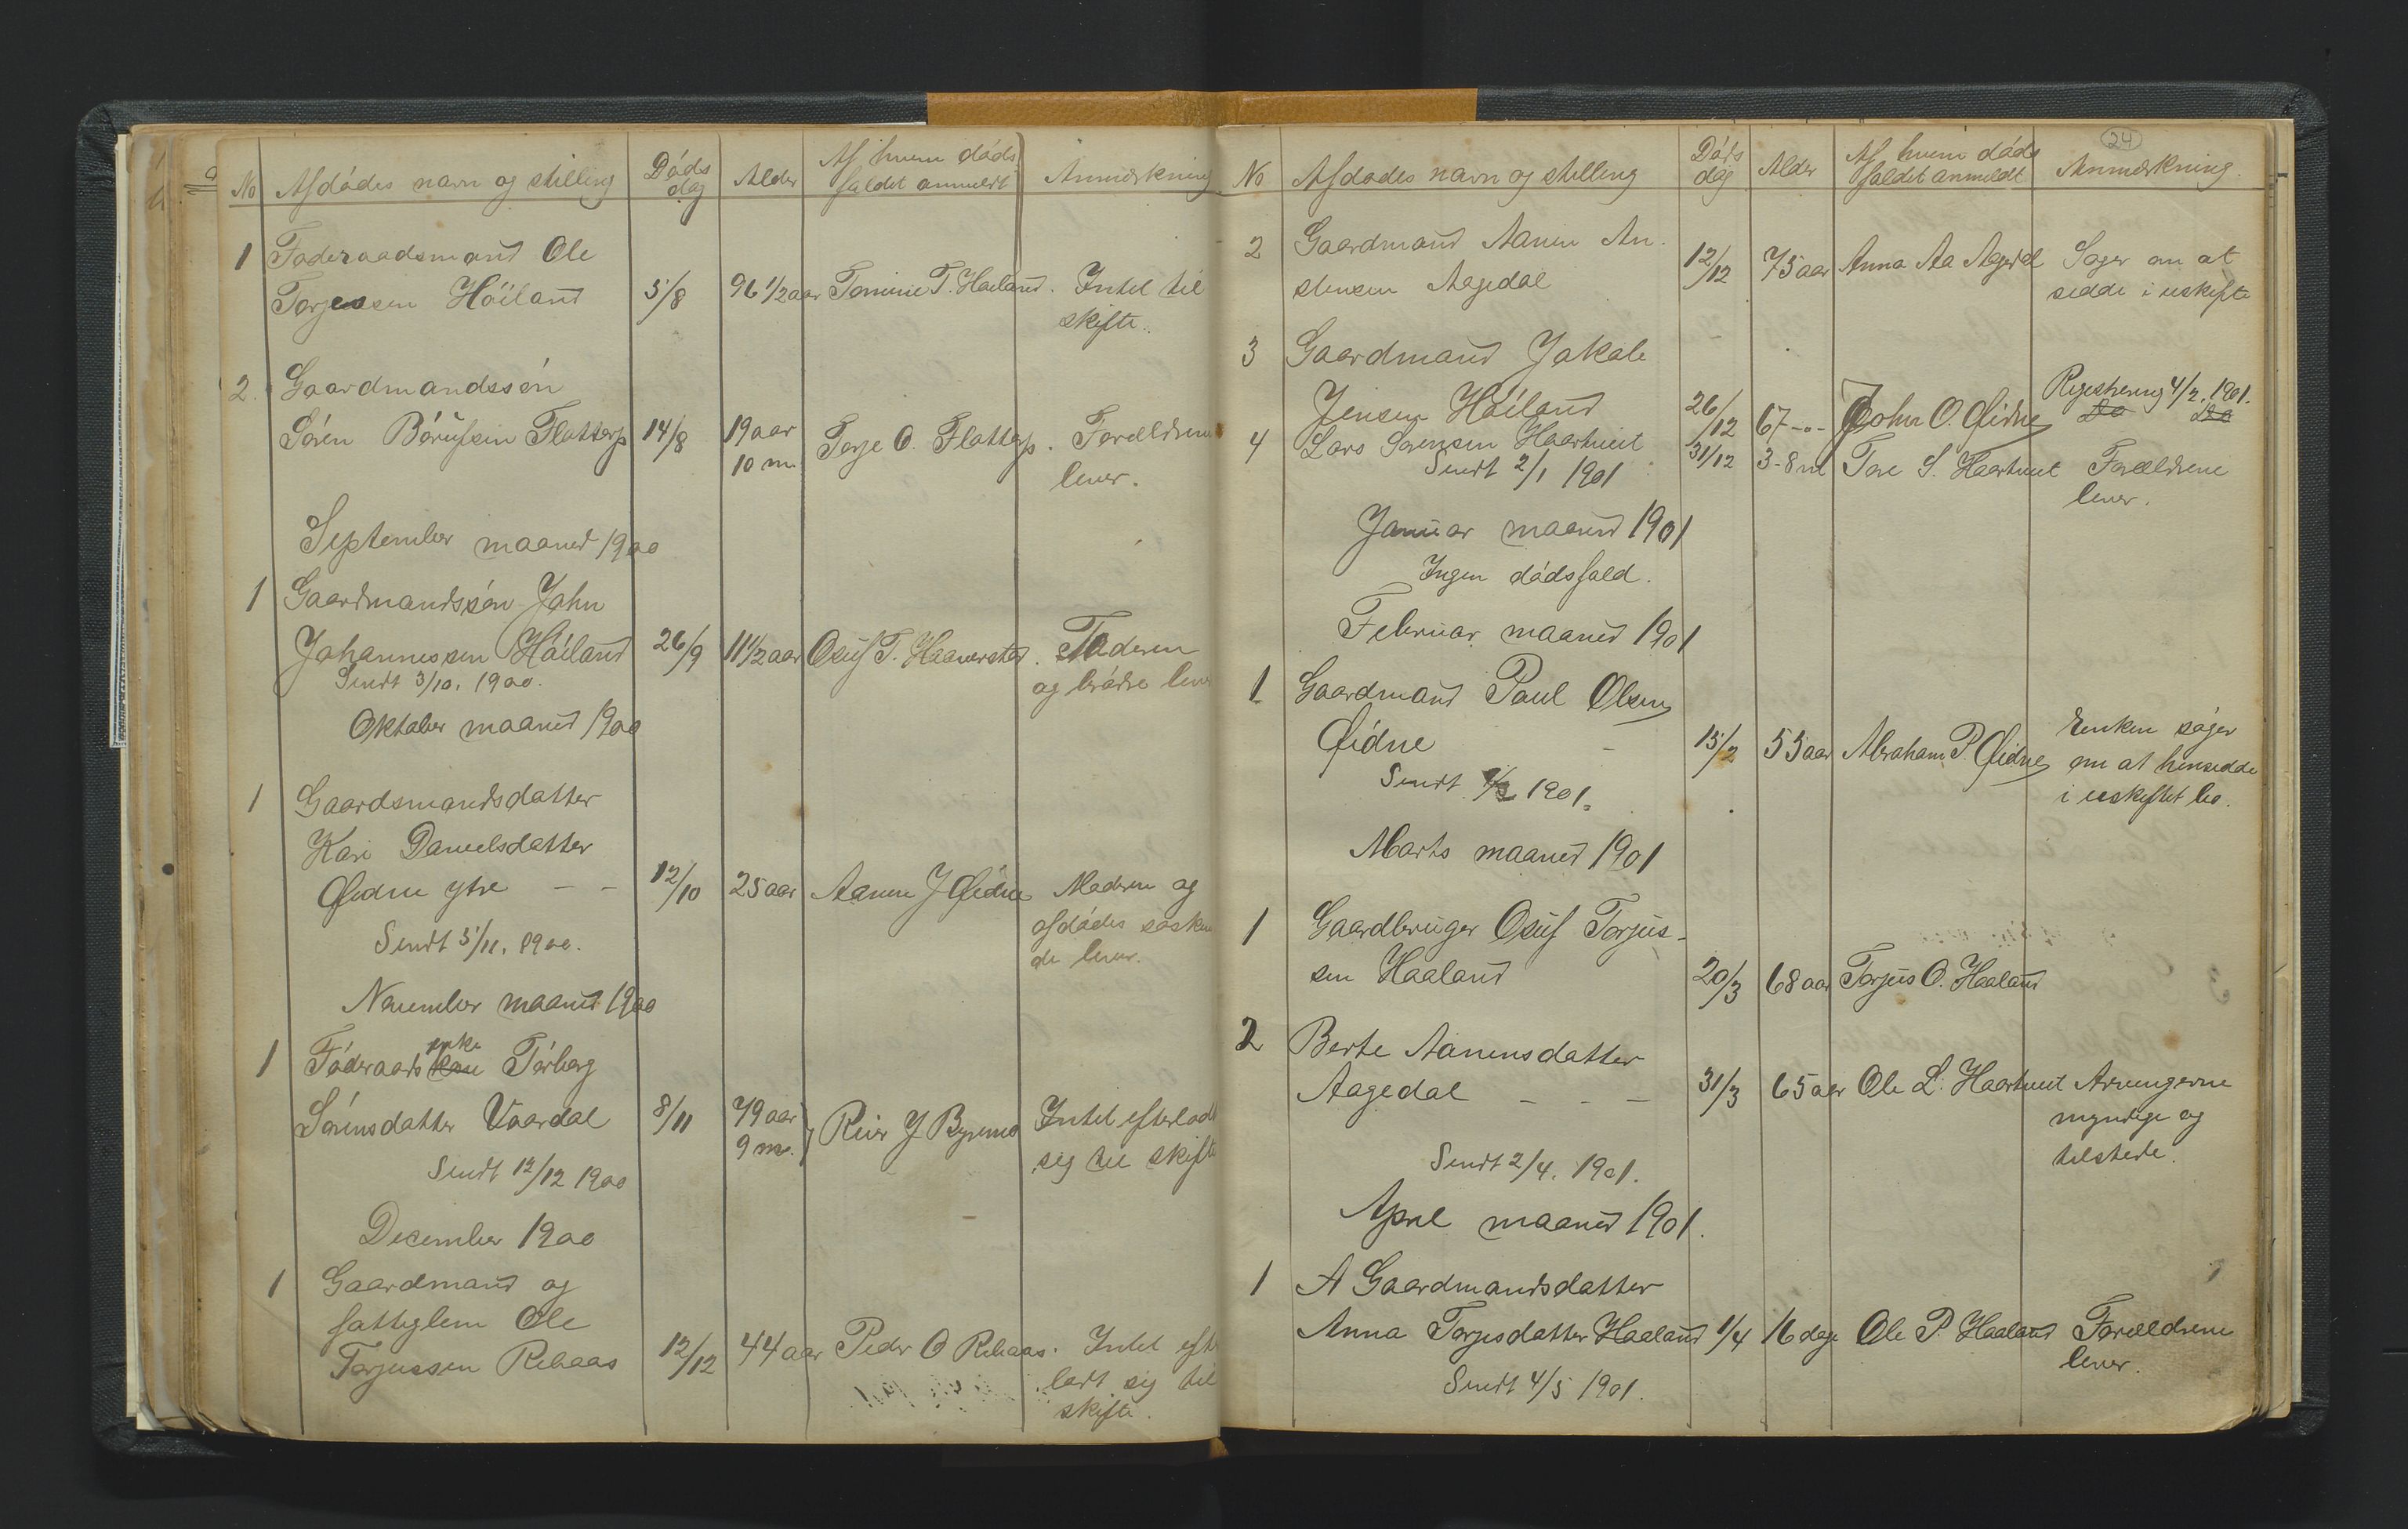 No Afdódes navn og stilling Dóds dag Alder Af hvem dóds faldet anmeldt Anmærkning
1 Foderaadsmand Ole
Torjussen Hóiland 5/8 96 1/2 aar Tomine T. Haaland. Intet til
skifte.
2. Gaardmandssón
Sóren Bórufsen Flottorp 14/8 19 aar Torje O. Flottorp. Forældrene
10 m. lever.
September maaned 1900
1 Gaardmandssón John
Johannessen Hóiland 26/9 11 1/2 aar Osuf T. Haaverstad. Faderen
Sendt 3/10. 1900. og bródre lever
Oktober maaned 1900
1 Gaardsmandsdatter
Kari Danielsdatter
Øidne ytre - - 12/10 25 aar Aanen J Øidne Moderen og
Sendt 5/11. 1900. afdódes sósken
de lever.
November maaned 1900
enke
1 Fóderaads kone Tórborg
Sórensdatter Vaardal 8/11 79 aar Reier J Byremo Intet efterladt
9 m. sig til skifte
Sendt 12/12 1900
December 1900
1 Gaardmand og
fattiglem Ole
Torjussen Rebaas 12/12 44 aar Peder O Rebaas. Intet efter
ladt sig til
skifte.
24
No Afdódes navn og stilling Dóds dag Alder Af hvem dóds faldet anmeldt Anmærkning.
2 Gaardmand Aanen An-
stensen Aagedal 12/12 75 aar Anna Aa Aagedal Sóger om at
sidde i uskifte
3 Gaardmand Jakob
Jensen Hóiland 26/12 67 -"- John O. Øidne Registrering 4/2. 1901.
Do Do
4 Lars Sorensen Haartveit 31/12 3-8 m Tore S. Haartveit Forældrene
Sendt 2/1 1901 lever.
Januar maaned 1901
Ingen dódsfald.
Februar maaned 1901
1 Gaardmand Paul Olsen
Øidne 15/2 55 aar Abraham P. Øidne Enken sóger
om at hensidde
Sendt 1/3 1901. i uskiftet bo.
Marts maaned 1901
1 Gaardbruger Osuf Torjus-
sen Haaland 20/3 68 aar Torjus O. Haaland
2 Berte Aanensdatter
Aagedal - - - 31/3 65 aar Ole L. Haartveit Arvingerne
myndige og
Sendt 2/4. 1901. tilstede.
April maaned 1901.
1 A Gaardmandsdatter
Anna Torjusdatter Haaland 1/4 16 dage Ole P. Haaland Forældrene
Sendt 4/5 1901. lever.